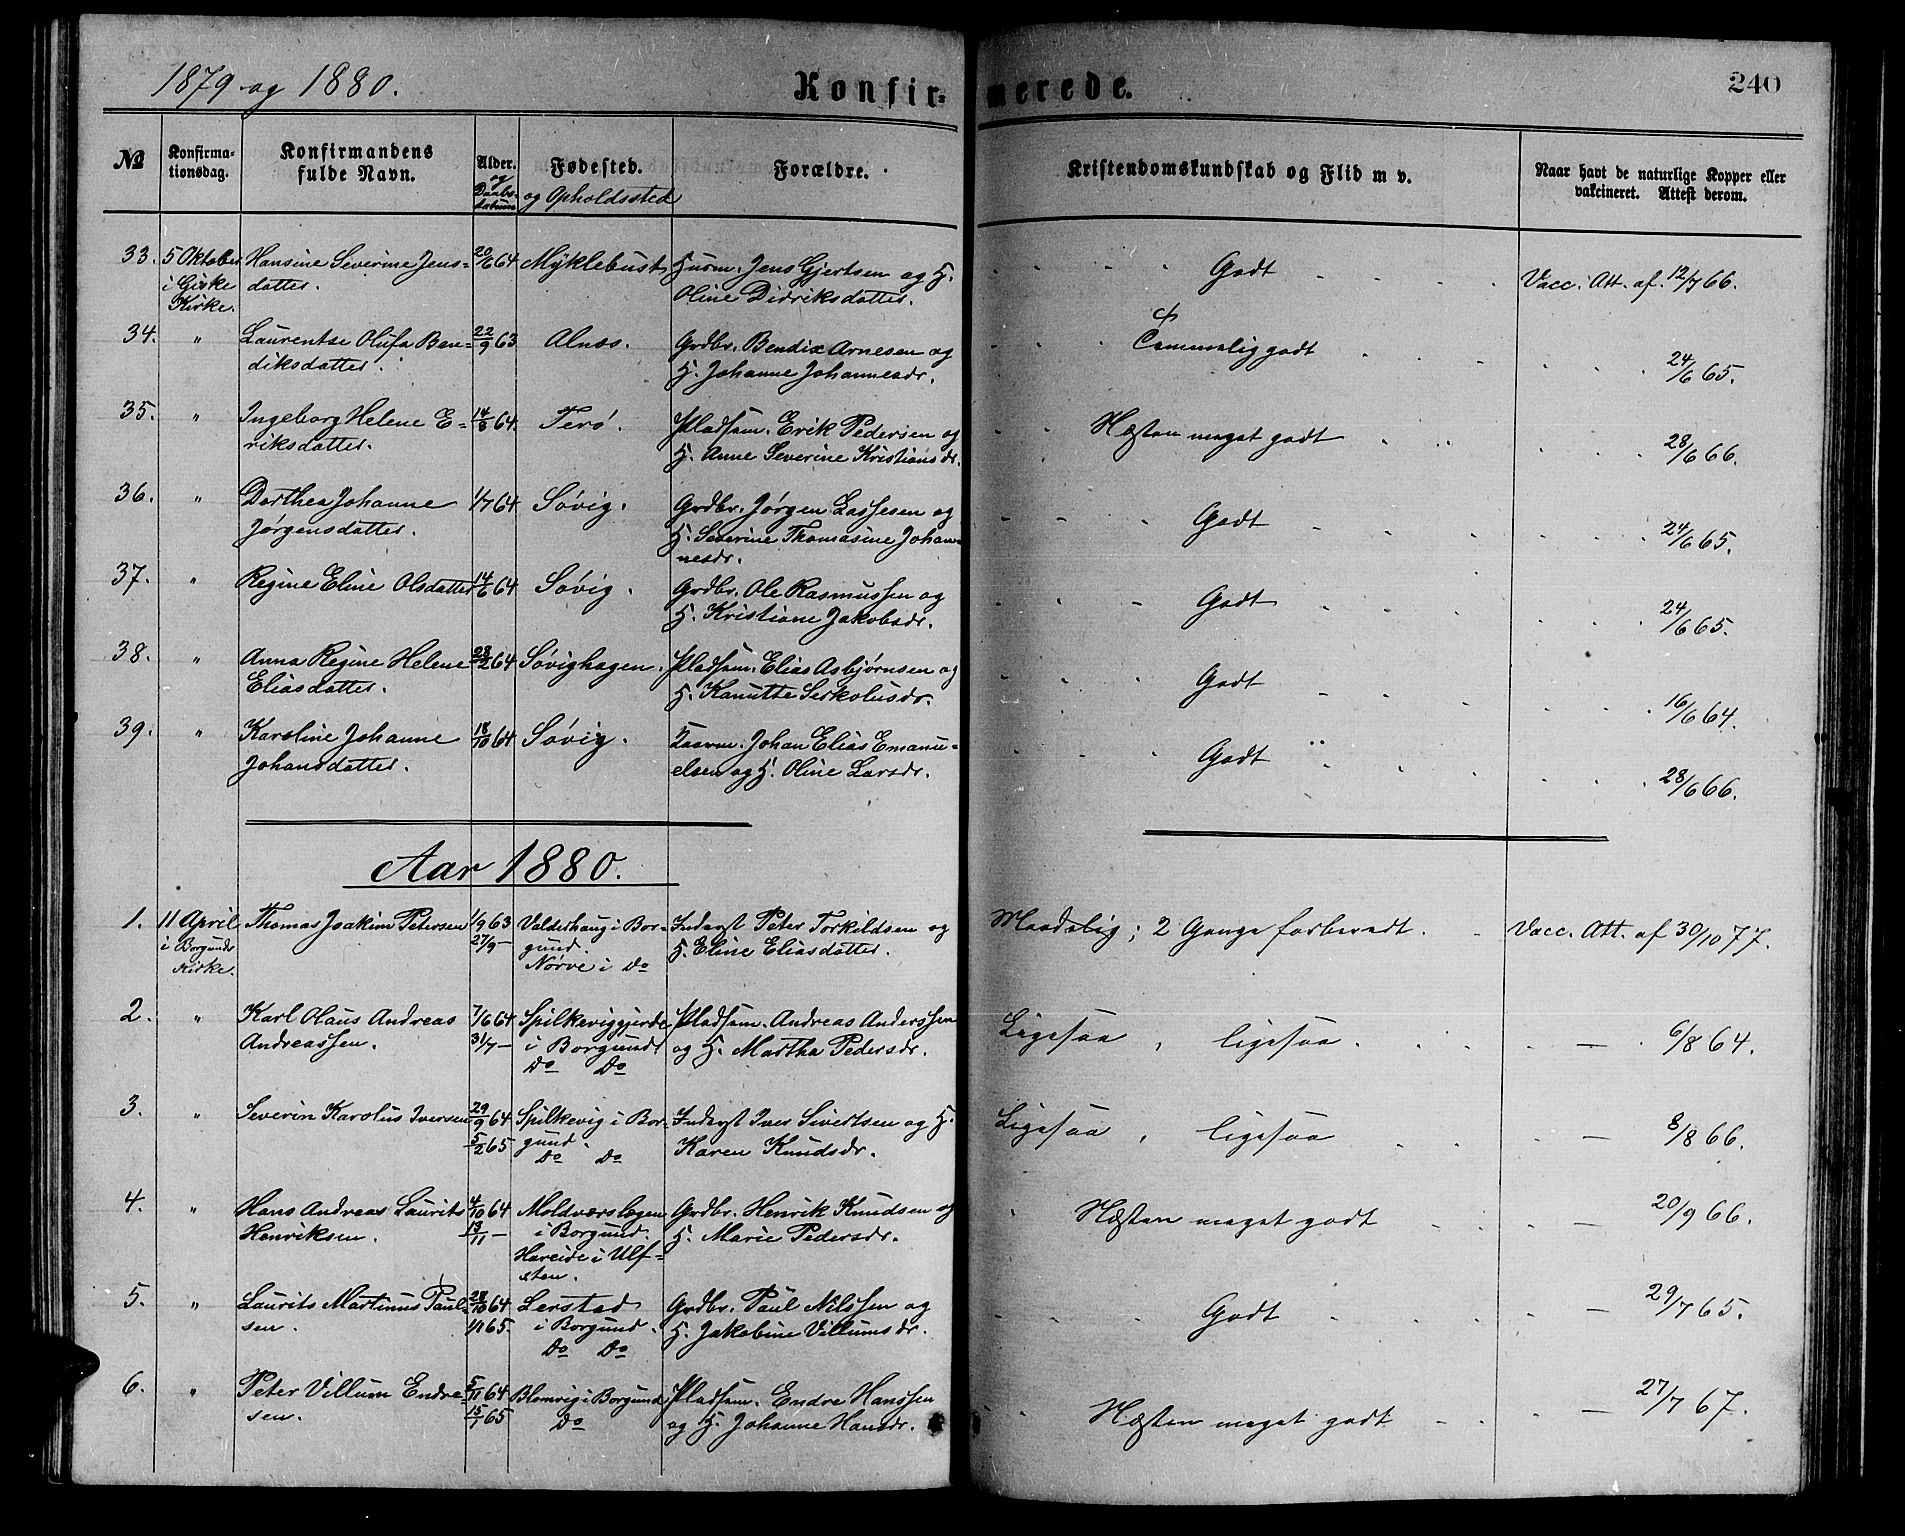 1879 og 1880.
Konfirmerede.
240
No
Konfirma-
tionsdag.
Konfirmandens
fulde Navn.
Alder.
og
Daabs-
datum
Fødested.
og Opholdssted
Forældre.
Kristendomskundskab og Flid m v.
Naar havt de naturlige Kopper eller
vakcineret. Attest derom.
33. 5 Oktober Hansine Severine Jens- 20/6 64 Myklebust Husm. Jens Gjertsen og H. Godt Vacc. Att. af. 12/7 66.
i Giske datter. Oline Didriksdatter.
Kirke.
34. " Laurentse Olufa Ben- 22/9 63 Alnæs. Grdbr. Bendix Arnesen og Temmelig godt 24/6 65.
diksdatter. H. Johanne Johannesdr.
35. " Ingeborg Helene E- 14/8 64. Terø. Pladsm. Erik Pedersen og Næsten meget godt 28/6 66.
riksdatter. H. Anne Severine Kristiansdr.
36. " Dorthea Johanne 1/7 64 Søvig. Grdbr. Jørgen Lassesen og Godt 24/6 65.
Jørgensdatter. H. Severine Thomasine Johan-
nesdr.
37. " Regine Eline Olsdatter 14/6 64 Søvig. Grdbr. Ole Rasmussen og Godt 24/6 65.
H. Kristiane Jakobsdr.
38. " Anna Regine Helene 28/2 64 Søvighagen. Pladsm. Elias Asbjørnsen og Godt 16/6 64.
Eliasdatter. H. Kanutte Serkolusdr.
39. " Karoline Johanne 18/10 64 Søvig. Johan Elias Emanu- Godt 28/6 66.
Johansdatter. elsen og H. Oline Larsdr.
Aar 1880.
1. 11 April Thomas Joakim Petersen 1/9 63 Valderhaug i Bor- Inderst Peter Torkildsen og Maadelig; 2 Gange forberedt. Vacc. Att. af 30/10 77.
i Borgunds 27/9 - gund H. Eline Eliasdatter.
Kirke. Nørve i Do
2. " Karl Olaus Andreas 7/6 64 Spilkeviggjerde Pladsm. Andreas Anderssen Ligesaa, ligesaa. - 6/8 64.
Andreassen. 31/7 - i Borgund og H. Martha Pedersdr.
Do Do
3. " Severin Karolus Iversen 29/9 64 Spilkevig i Bor- Inderst Iver Sivertsen og H. Ligesaa, ligesaa - 8/8 66.
5/2 65 gund. Karen Knudsdr.
Do Do
4. " Hans Andreas Laurits 4/10 64 Moldværslægen Grdbr. Henrik Knudsen og Næsten meget godt - 20/9 66.
Henriksen. 13/11 - i Borgund. H. Marie Pedersdr.
Hareide i Ulf-
sten.
5. " Laurits Martinus Paul- 28/10 64 Lerstad Grdbr. Paul Nilssen og Godt - 29/7 65.
sen. 1/1 65. i Borgund. H. Jakobine Villumsdr.
Do Do
6. " Peter Villum Endre- 5/11 64 Blomvig i Borgund Pladsm. Endre Hanssen Næsten meget godt - 27/7 67.
sen. 15/1 65 Do og H. Johanne Hansdr.